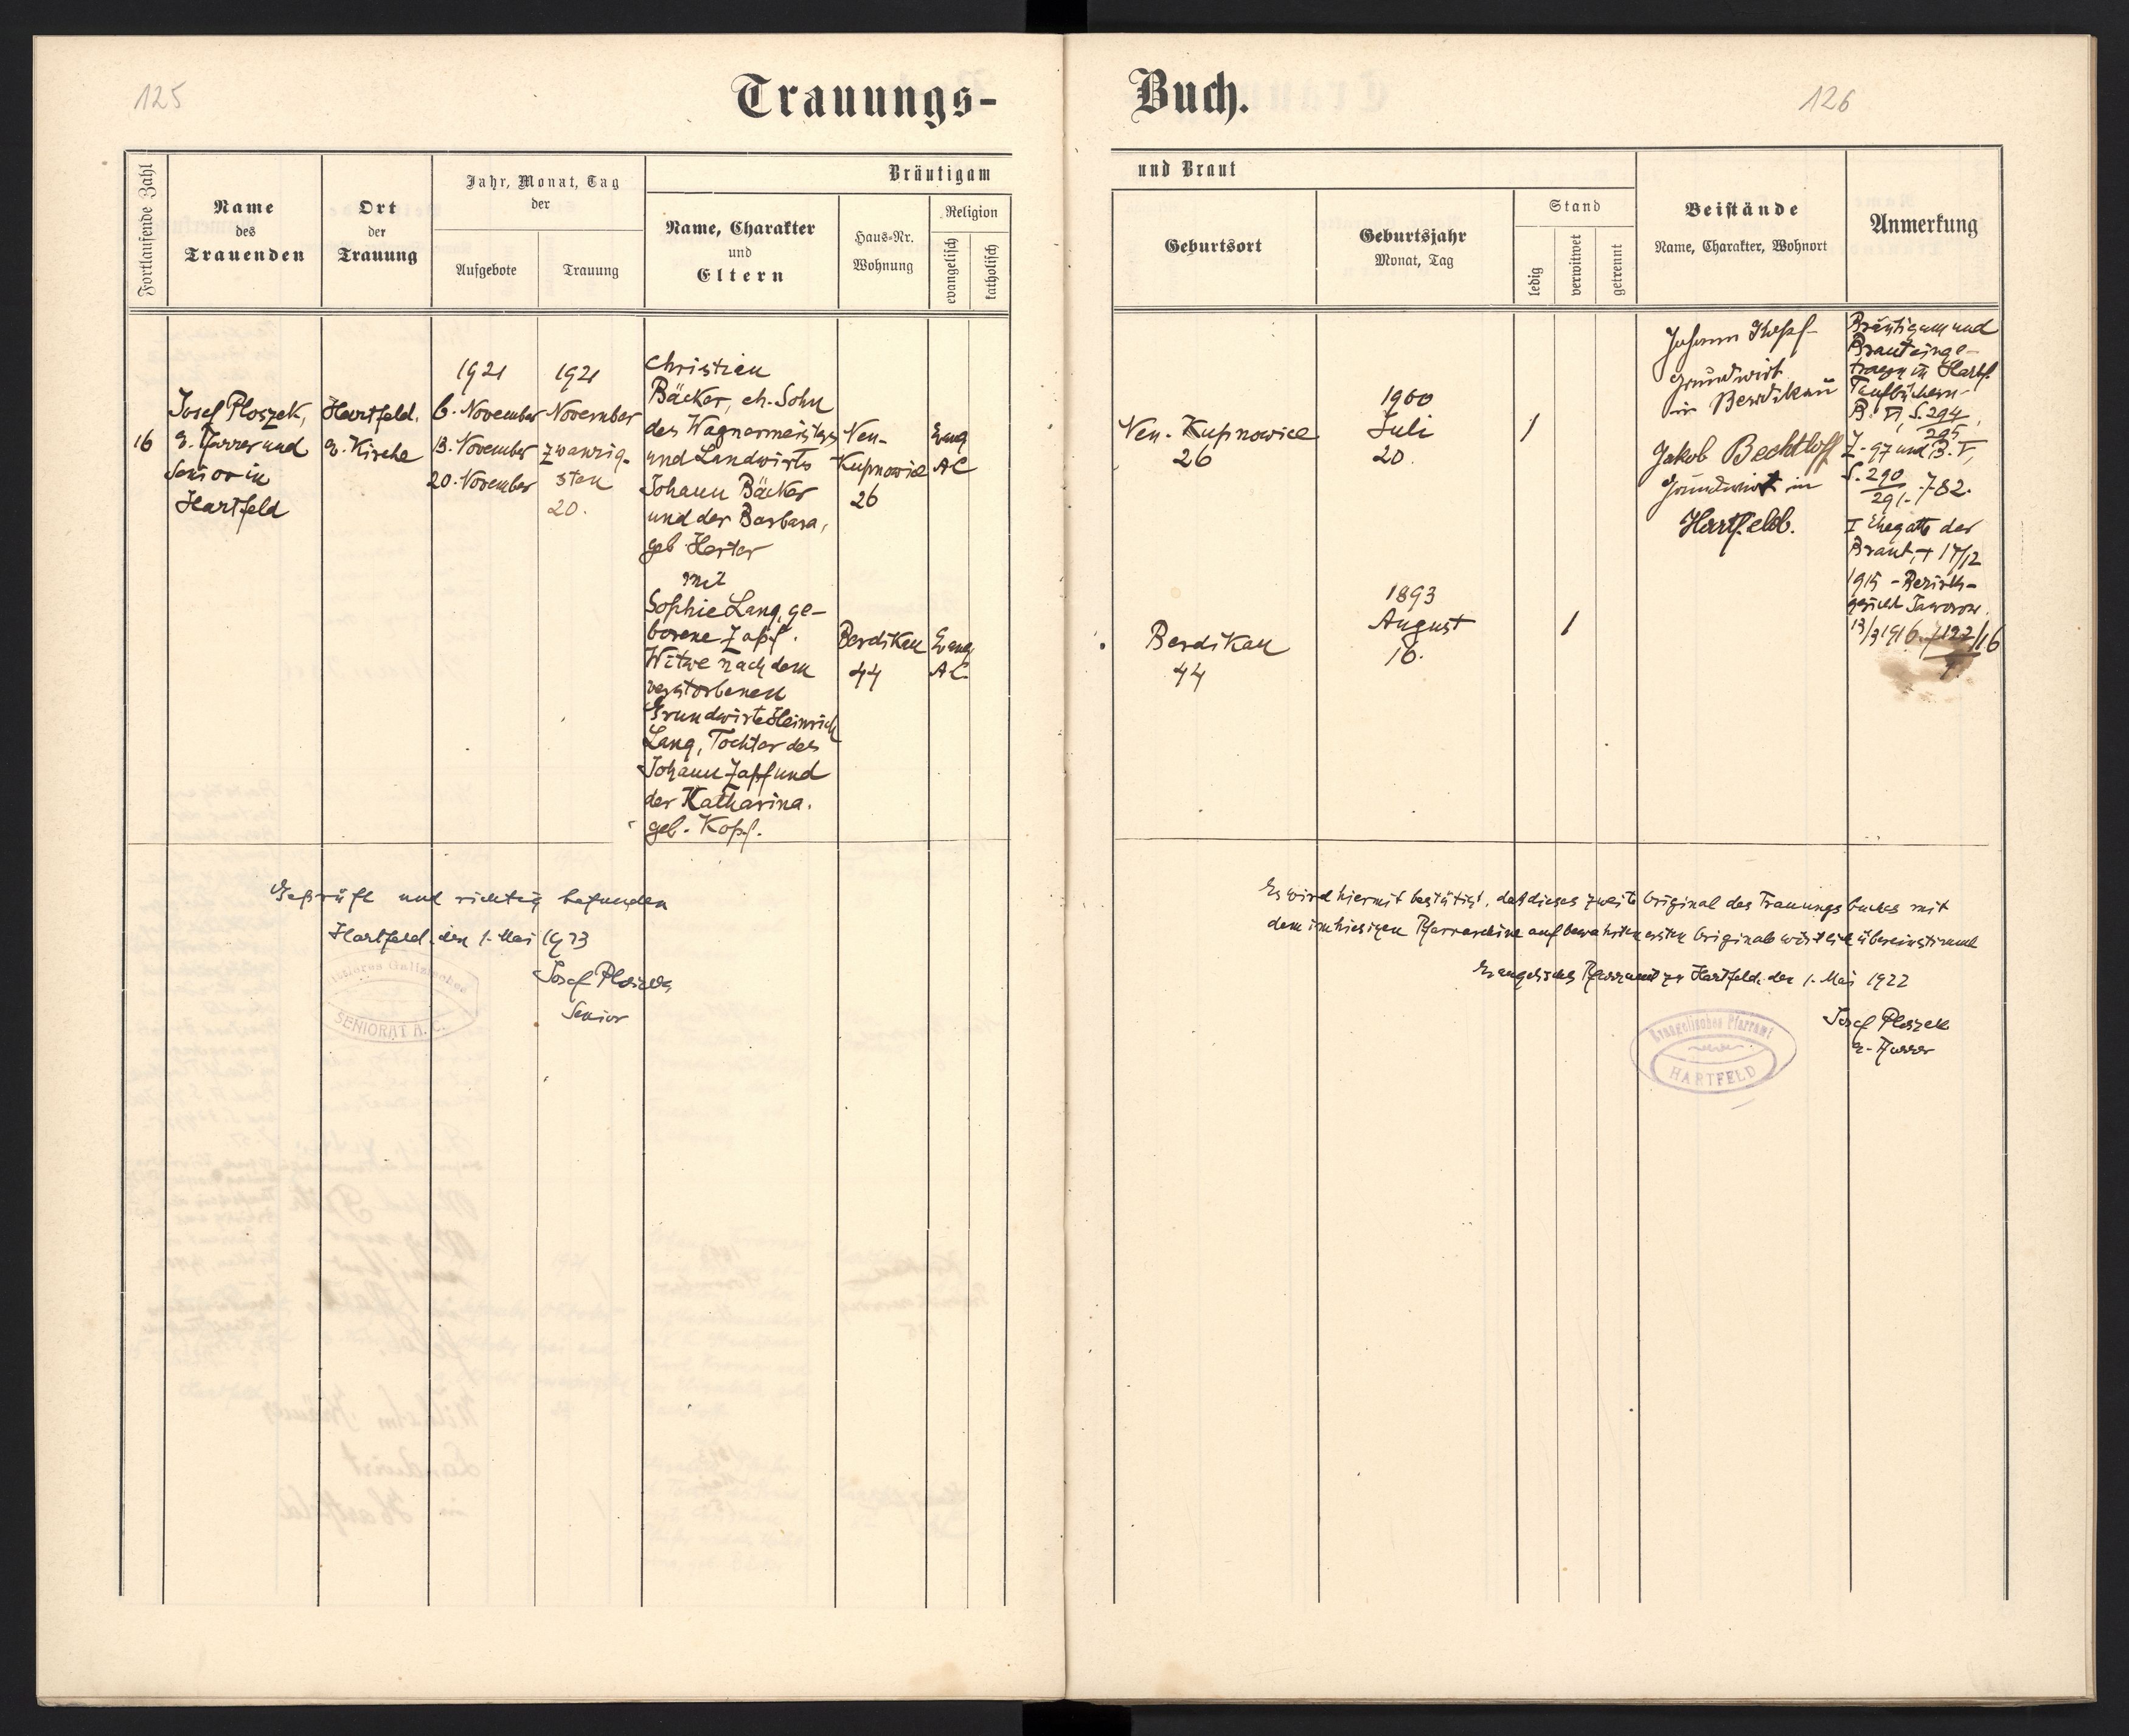 125
Trauungs-
Buch.
126
Fortlaufende Zahl
Name
des
Trauenden
Ort
der
Trauung
Jahr, Monat, Tag
der
Aufgebote
Trauung
Bräutigam
Name, Charakter
und
Eltern
Haus-Nr.
Wohnung
Religion
evangelisch
katholisch
und Braut
Geburtsort
Geburtsjahr
Monat, Tag
Stand
ledig
verwitwet
getrennt
Beistände
Name, Charakter, Wohnort
Anmerkung
16
Josef Ploszek,
e. Pfarrer und
Senior in
Hartfeld
Hartfeld.
e. Kirche
1921
6. November
13. November
20. November
1921
November
zwanzig-
sten
20.
Christian
Bäcker, eh. Sohn
des Wagnermeisters
und Landwirts
Johann Bäcker
und der Barbara,
geb. Herter
mit
Sophie Lang, ge-
borene Zapf.
Witwe nach dem
verstorbenen
Grundwirte Heinrich
Lang, Tochter des
Johann Zapf und
der Katharina.
geb. Kopf.
Neu-
Kupnowice
26
Berdikau
44
Evang
AC
Evang
AC.
Neu-Kupnowice
26
Berdikau
44
1900
Juli
20.
1893
August
16.
/
/
Johann
Grundwirt
in Berdikau
Jakob Bechtloff
Grundwirt in
Hartfeld.
Bräutigam und
Braut einge-
tragen in Hartf.
Taufbüchern-
B. VI, S. 294
295,
Z. 97 und B. V,
S. 290
291. Z 82.
I Ehegatte der
Braut, + 17/12
1915 - Bezirks-
gericht Jaworow.
13/3 1916
Geprüft und richtig befunden
Hartfeld, den 1. Mai 1923
Josef Ploszek
Senior
SENIORAT A. C.
Es wird hiermit bestätigt, daß dieses zweite Original des Trauungsbuches mit
dem im hiesigen Pfarrarchive aufbewahrten ersten Originale wörtlich übereinstimmt
Evangelisches Pfarramt zu Hartfeld, den 1. Mai 1922
Josef Ploszek
e. Pfarrer
Evangelisches Pfarramt
HARTFELD